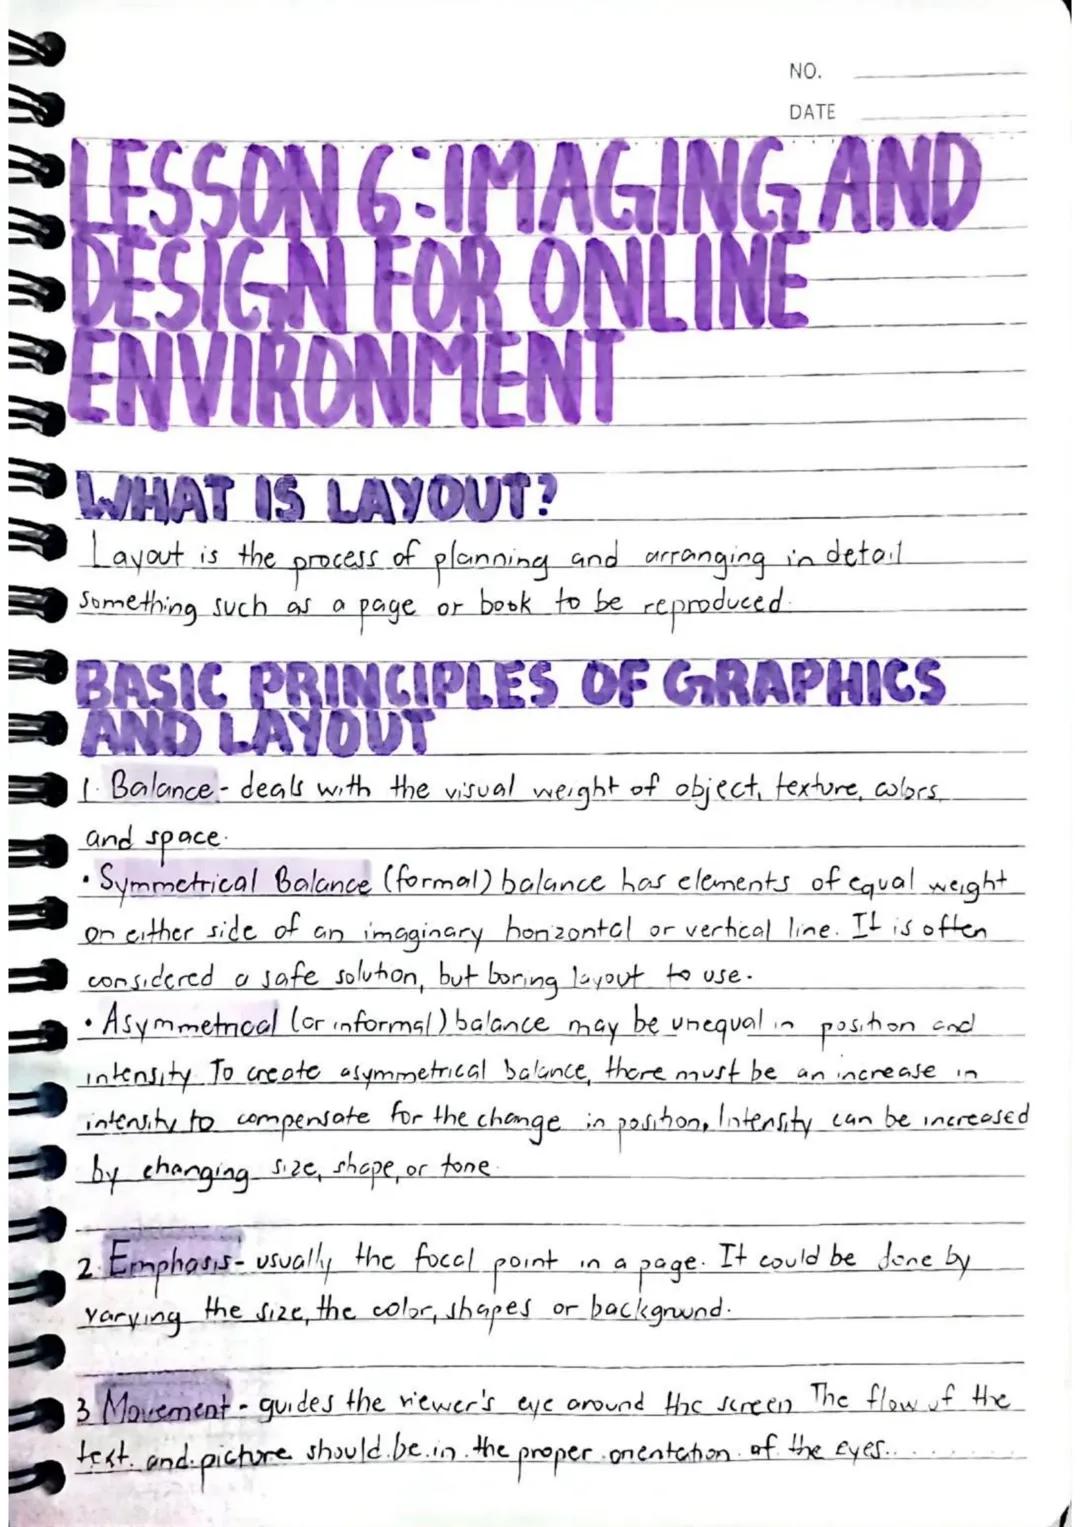 NO.
DATE
LESSON 6: IMAGING AND
DESIGN FOR ONLINE
ENVIRONMENT
WHAT IS LAYOUT?
Layout is the process of planning and arranging in detail
something such as a page or book to be reproduced.
BASIC PRINCIPLES OF GRAPHICS
AND LAYOUT
1. Balance - deals with the visual weight of object, texture, colors,
and space.
• Symmetrical Balance (formal) balance has elements of equal weight
on either side of an imaginary horizontal or vertical line. It is often
considered a safe solution, but boring layout to use.
• Asymmetrical (or informal) balance may be unequal in position and
intensity. To create asymmetrical balance, there must be an increase in
intensity to compensate for the change in position. Intensity can be increased
by changing size, shape, or tone.
2. Emphasis - usually the focal point in a page. It could be done by
varying the size, the color, shapes or background.
3 Movement - guides the viewer's eye around the screen. The flow of the
text. and picture should be in the proper orientation of the eyes.